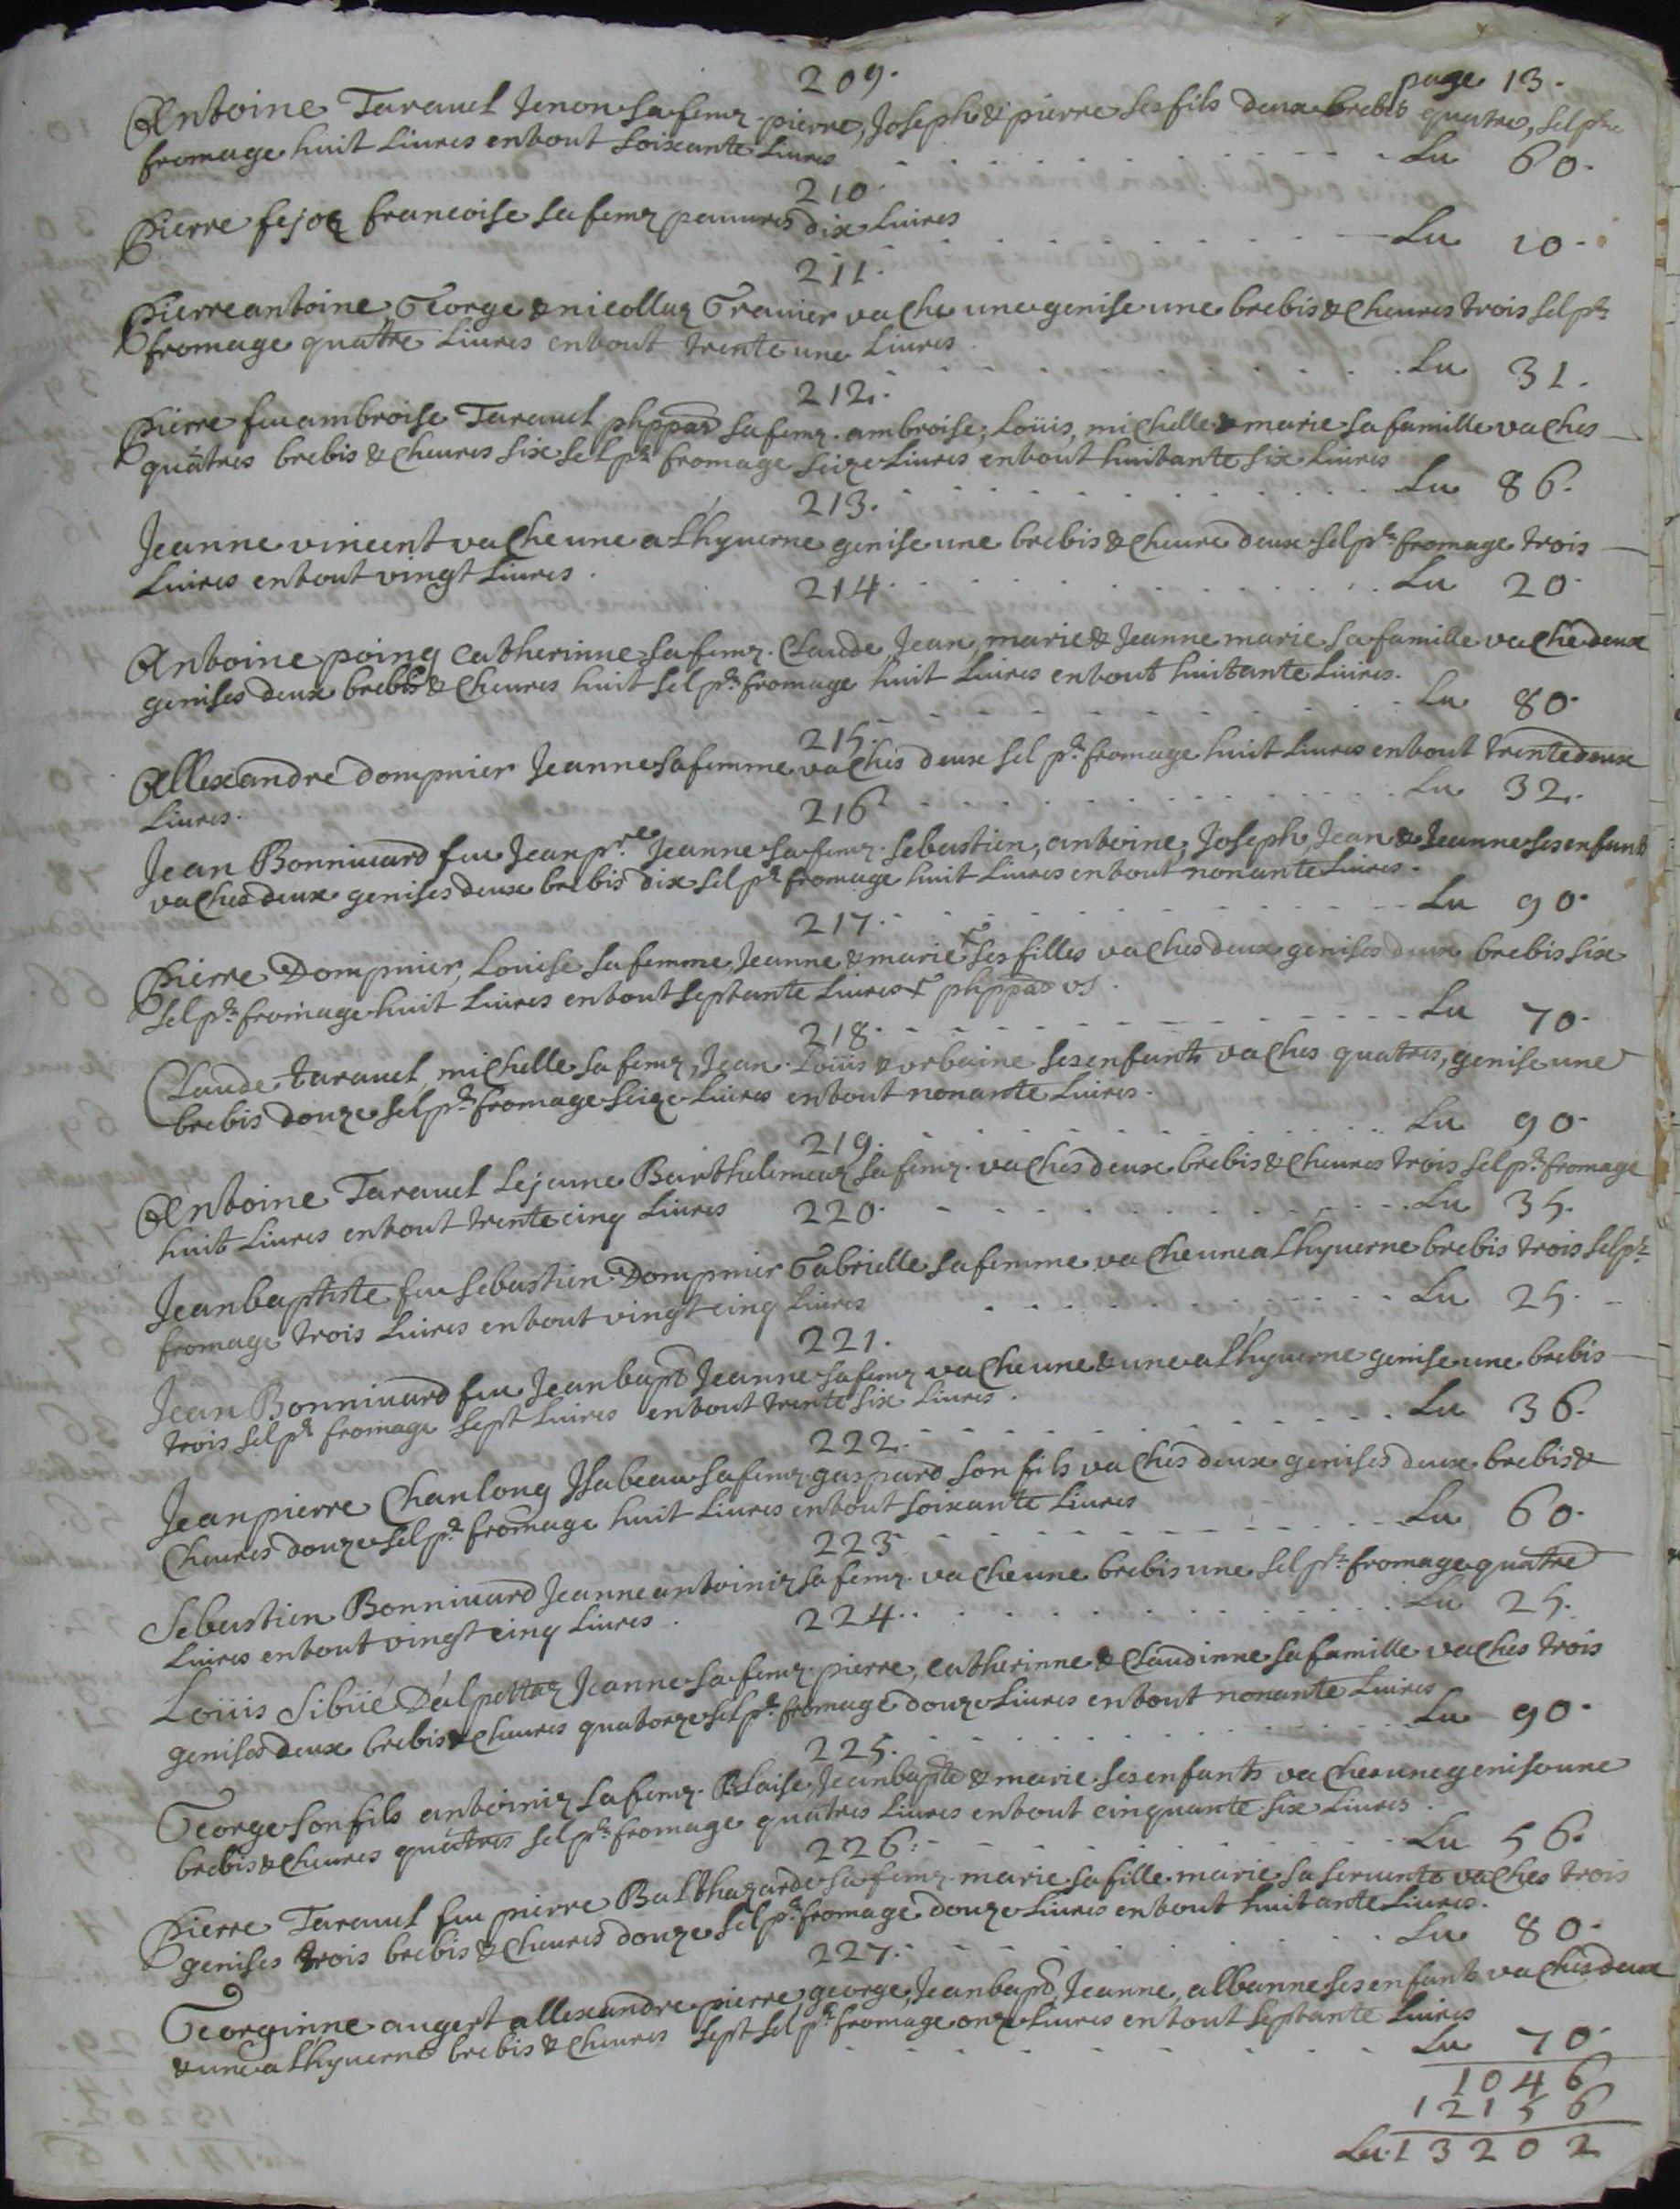 209. page 13.
Antoine Tarauel Jenon sa femz. pierre, Joseph & pierre ses fils deux brebis quatre, sel pr
fromage huit Liures entout soixante Liures Lu 60.
210
pierre fejoz francoise sa femz pauures dix Liures Lu 10.
211.
pierre antoine George & nicollaz Granier vache une genise une brebis & cheures trois sel pr
fromage quatre Liures entout trente une Liures Lu 31.
212.
pierre feu ambroise Tarauel phppaz sa femz. ambroise, Loüis, michelle & marie sa famille vaches
quatres brebis & cheures six sel pr fromage seize Liures entout huitante six Liures Lu 86.
213.
Jeanne vincent vache une a Lhyuerne genise une brebis & cheure deux sel pr fromage trois
Liures entout vingt Liures. Lu 20
214.
Antoine poinq Catherinne sa femz. Claude, Jean, marie & Jeanne marie sa famille vache deux
genises deux brebis & cheures huit sel pr fromage huit Liures entout huitante Liures. Lu 80.
215.
Allexandre dompnier Jeanne sa femme vaches deux sel pr fromage huit Liures entout trente deux
Liures. Lu 32.
216
Jean Bonniuard feu Jean pre Jeanne sa femz. sebastien, antoine, Joseph, Jean & Jeanne ses enfants
vaches deux genises deux brebis dix sel pr fromage huit Liures entout nonante Liures. Lu 90.
217.
pierre Dompnier, Louise sa femme, Jeanne & marie ses filles vaches deux genises deux brebis six
sel pr fromage huit Liures entout septante Liures phppaz Lu 70.
218.
Claude tarauel, michelle sa femz, Jean Loüis & urbaine ses enfants vaches quatres, genise une
brebis douze sel pr fromage seize Liures entout nonante Liures. Lu 90.
219.
Antoine Tarauel Lejeune Barthelemeaz sa femz. vaches deux brebis & cheures trois sel pr fromage
huit Liures entout trente cinq Liures Lu 35.
220.
Jean baptiste feu sebastien Dompnier Gabrielle sa femme vache une a Lhyuerne brebis trois sel pr
fromage trois Liures entout vingt cinq Liures Lu 25.
221.
Jean Bonniuard feu Jean bapte Jeanne sa femz vache une & une a Lhyuerne genise une brebis
trois sel pr fromage sept Liures entout trente six Liures. Lu 36.
222.
Jean pierre Chanlong Isabeau sa femz. gaspard son fils vaches deux genises deux brebis &
cheures douze sel pr fromage huit Liures entout soixante Liures Lu 60.
223
Sebastien Bonniuard Jeanne antoiniz sa femz. vache une brebis une sel pr fromage quatre
Liures entout vingt cinq Liures. Lu 25.
224.
Loüis Sibüé Dalpettaz Jeanne sa femz. pierre, Catherinne & Claudinne sa famille vaches trois
genises deux brebis & cheures quatorze sel pr fromage douze Liures entout nonante Liures Lu 90.
225.
George son fils antoiniz sa femz. Blaise, Jeanbapte & marie ses enfants vaches une genise une
brebis & cheures quatres sel pr fromage quatres Liures entout cinquante six Liures. Lu 56.
226.
pierre Tarauel feu pierre Balthazarde sa femz. marie sa fille marie sa seruante vaches trois
genises trois brebis & cheures douze sel pr fromage douze Liures entout huitante Liures. Lu 80.
227.
Georginne augert allexandre pierre, george, Jeanbapte, Jeanne, albanne ses enfants vaches deux
& une a Lhyuerne brebis & cheures sept sel pr fromage onze Liures entout septante Liures Lu 70.
1046
12156
Lu. 13202